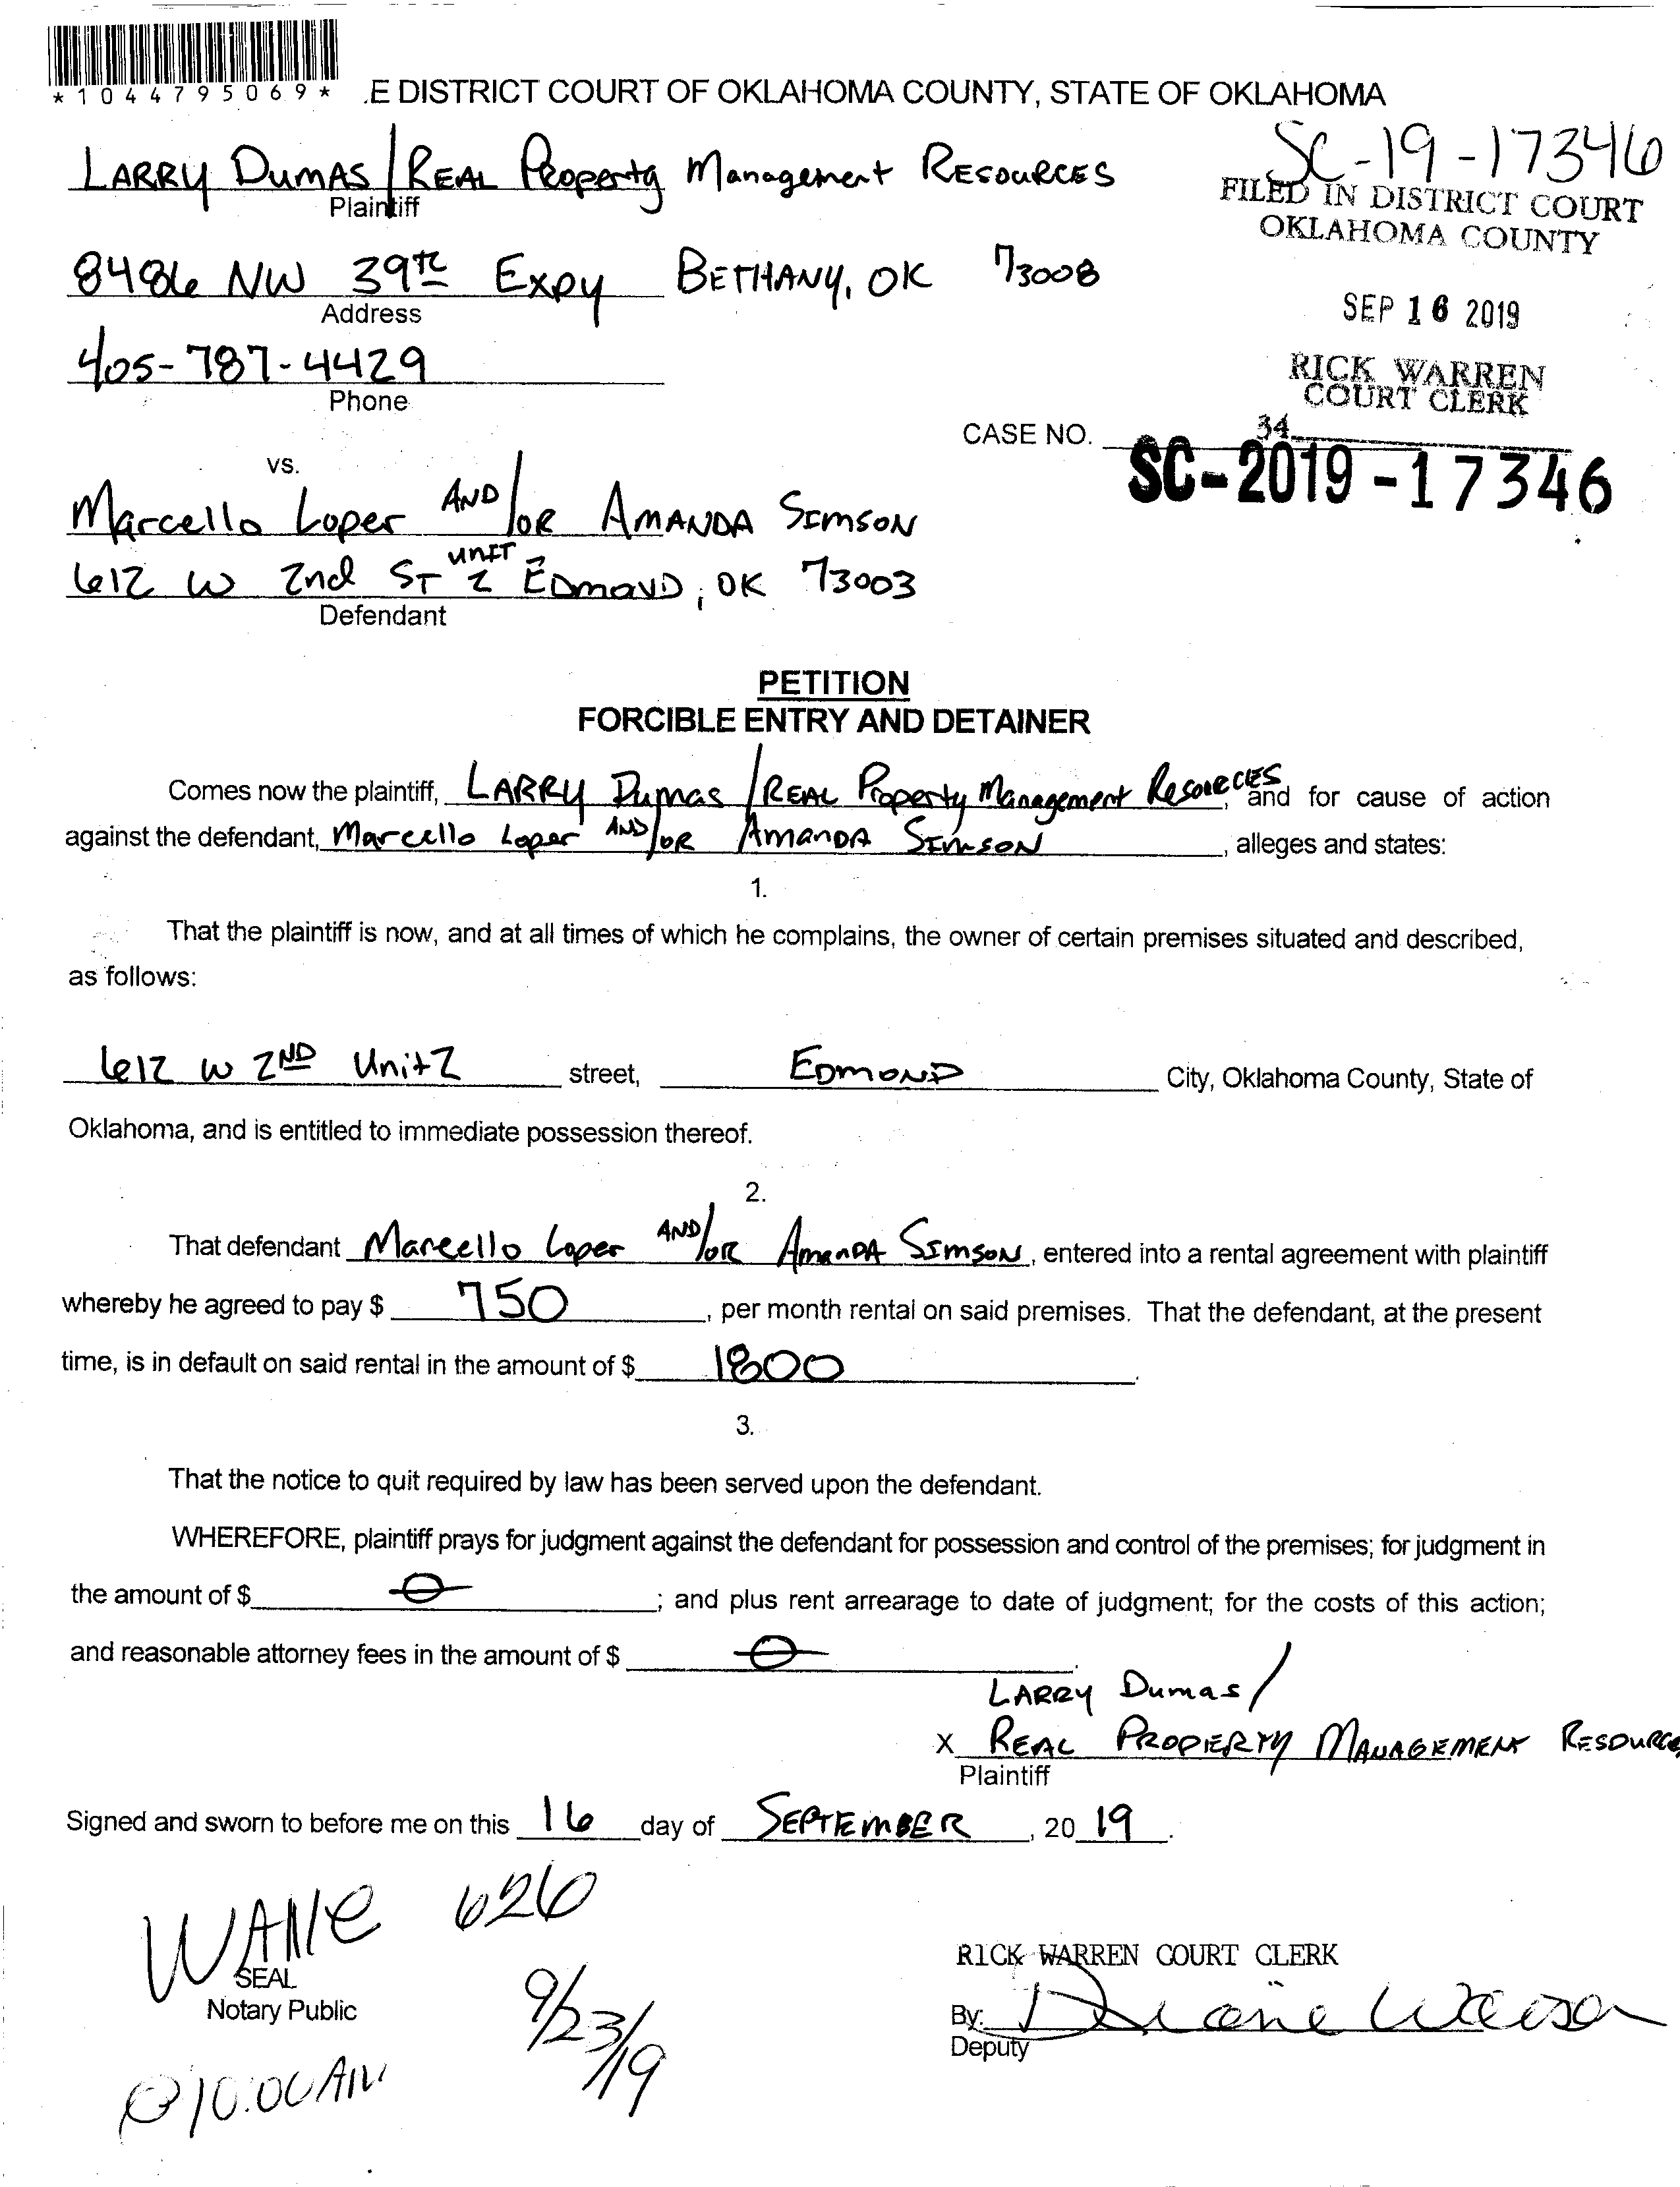 *1044795069*
.E DISTRICT COURT OF OKLAHOMA COUNTY, STATE OF OKLAHOMA
SC-19-17346
LARRY DUMAS / REAL Property Management RESOURCES
Plaintiff
FILED IN DISTRICT COURT
OKLAHOMA COUNTY
8486 NW 39th Expy BETHANY, OK 73008
Address
SEP 16 2019
405-787-4429
Phone
RICK WARREN
COURT CLERK
34
CASE NO.
SC-2019-17346
vs.
Marcello Loper AND/OR AMANDA SIMSON
612 W 2nd ST UNIT 2 EDMOND, OK 73003
Defendant
PETITION
FORCIBLE ENTRY AND DETAINER
Comes now the plaintiff, LARRY Dumas / REAL Property Management Resources, and for cause of action
against the defendant, Marcello Loper AND/OR AMANDA SIMSON, alleges and states:
1.
That the plaintiff is now, and at all times of which he complains, the owner of certain premises situated and described,
as follows:
612 W 2ND Unit 2 street, EDMOND City, Oklahoma County, State of
Oklahoma, and is entitled to immediate possession thereof.
2.
That defendant Marcello Loper AND/OR AMANDA SIMSON, entered into a rental agreement with plaintiff
whereby he agreed to pay $ 750, per month rental on said premises. That the defendant, at the present
time, is in default on said rental in the amount of $ 1800.
3.
That the notice to quit required by law has been served upon the defendant.
WHEREFORE, plaintiff prays for judgment against the defendant for possession and control of the premises; for judgment in
the amount of $ 0; and plus rent arrearage to date of judgment; for the costs of this action;
and reasonable attorney fees in the amount of $ 0.
LARRY Dumas/
X REAL PROPERTY MANAGEMENT RESOURCES
Plaintiff
Signed and sworn to before me on this 16 day of SEPTEMBER, 2019.
626
SEAL
Notary Public
9/23/19
@ 10:00 AM
RICK WARREN COURT CLERK
By: Diane
Deputy